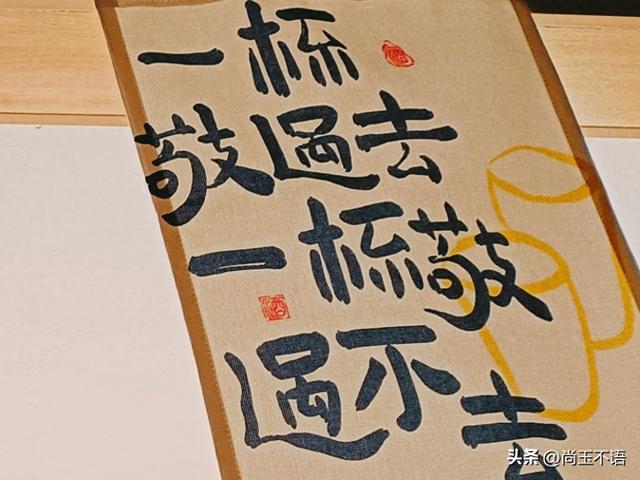 一杯
敬過去
一杯敬
過不去
头条 @尚玉不语